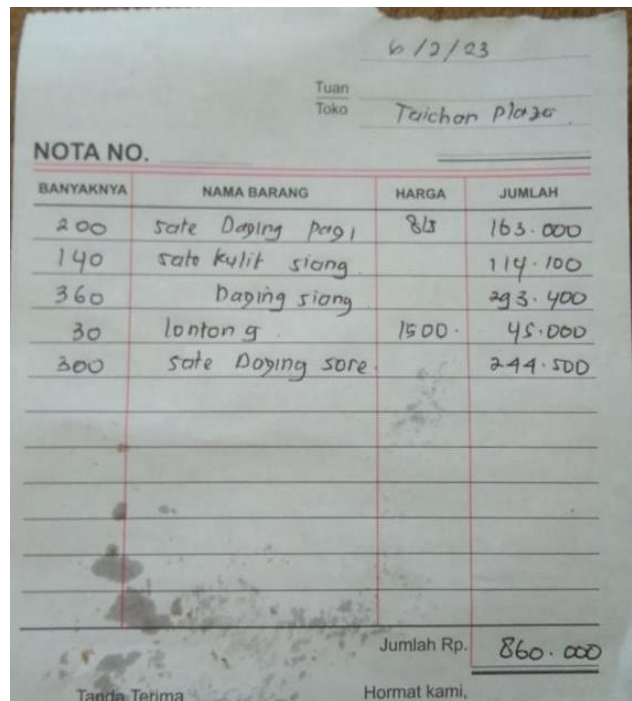 6/2/23
Tuan
Toko Taichan Plaza
NOTA NO.
BANYAKNYA NAMA BARANG HARGA JUMLAH
200 sate Daging pagi 815 163.000
140 sate kulit siang 114.100
360 Daging siang 293.400
30 lontong 1500. 45.000
300 sate Daging sore. 244.500
Jumlah Rp. 860.000
Tanda Terima Hormat kami,